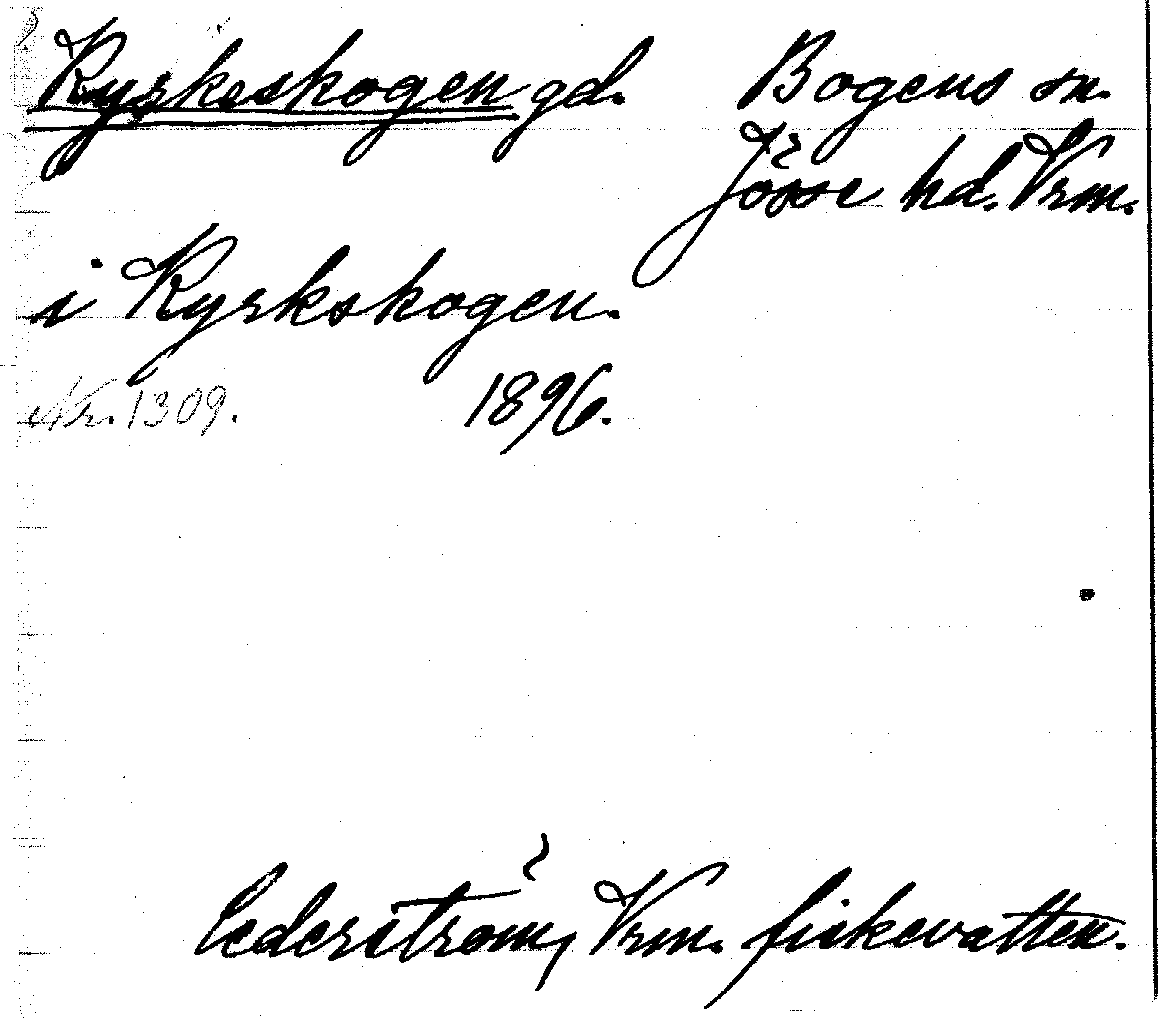 Kyrkeskogen gd. Bogens sn.
Jösse hd. Vrm.
i Kyrkskogen.
Nr. 1309. 1896.
Cederström, Vrm. fiskevatten.